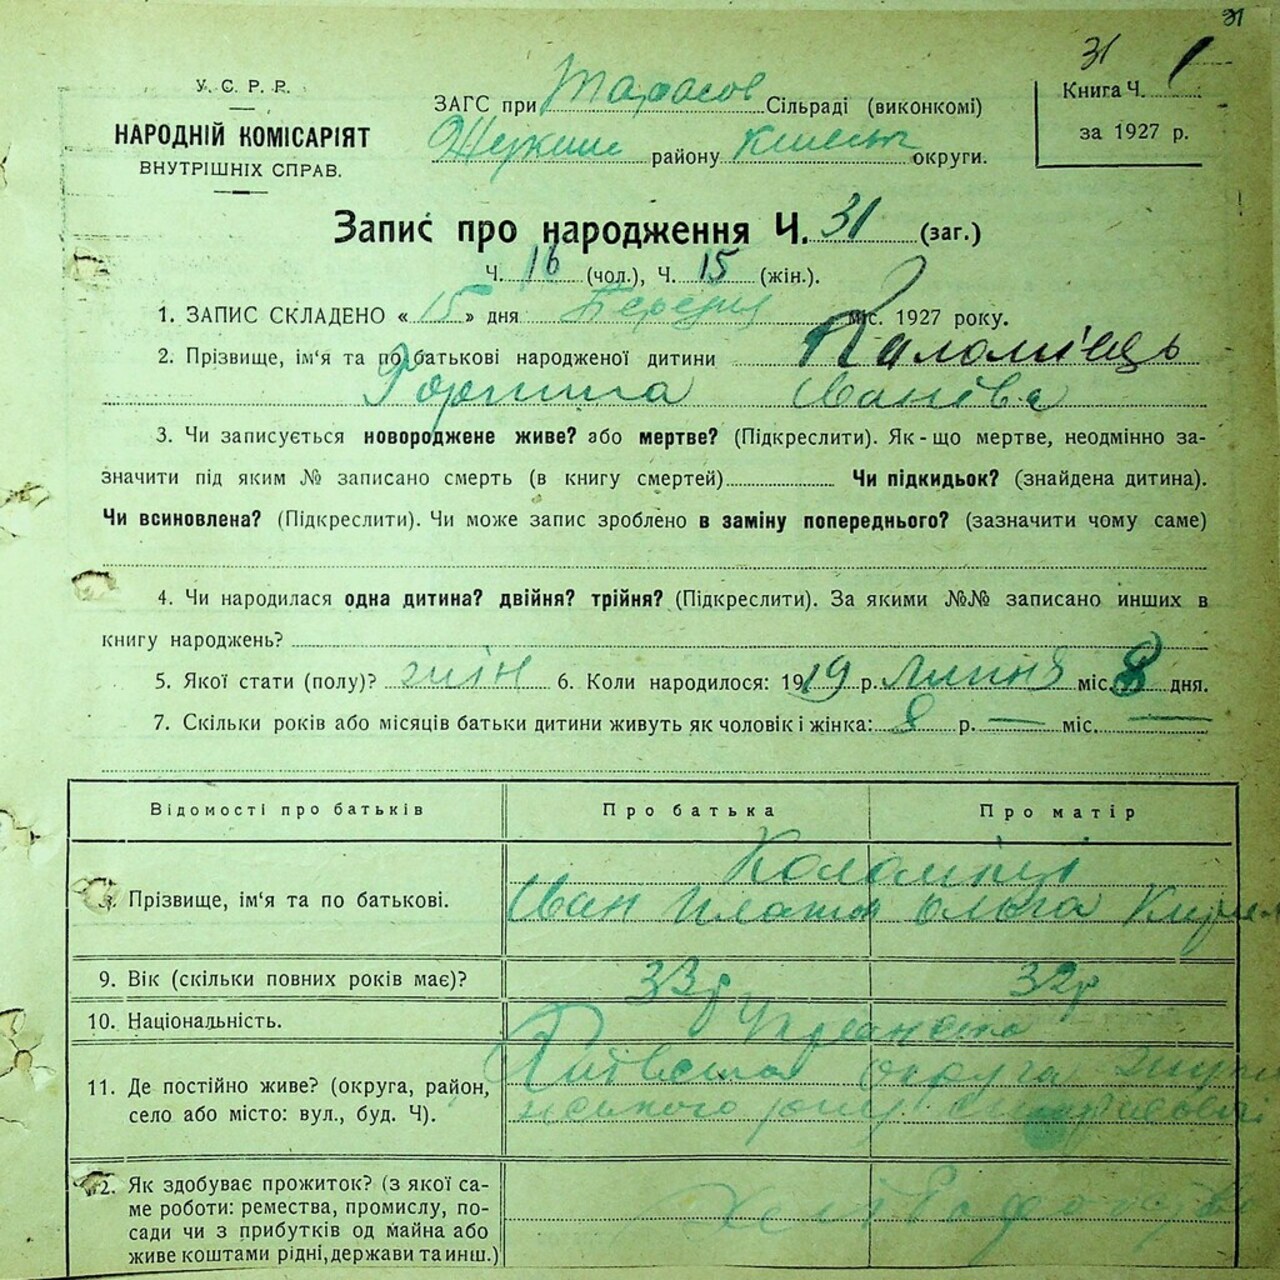 31
31
У. С. Р. Р.
НАРОДНІЙ КОМІСАРІЯТ
ВНУТРІШНІХ СПРАВ.
ЗАГС при Тарасов Сільраді (виконкомі)
району округи.
Книга Ч. 1
за 1927 р.
Запис про народження Ч. 31 (заг.)
Ч. 16 (чол.), Ч. 15 (жін.).
1. ЗАПИС СКЛАДЕНО «15» дня міс. 1927 року.
2. Прізвище, ім'я та по батькові народженої дитини Коломієць
Іванівна
3. Чи записується новороджене живе? або мертве? (Підкреслити). Як-що мертве, неодмінно за-
значити під яким № записано смерть (в книгу смертей) Чи підкидьок? (знайдена дитина).
Чи всиновлена? (Підкреслити). Чи може запис зроблено в заміну попереднього? (зазначити чому саме)
4. Чи народилася одна дитина? двійня? трійня? (Підкреслити). За якими №№ записано инших в
книгу народжень?
5. Якої стати (полу)? жін 6. Коли народилося: 1919 р. Липня міс. 8 дня.
7. Скільки років або місяців батьки дитини живуть як чоловік і жінка: 8 р. — міс. —
Відомості про батьків Про батька Про матір
Коломієць
8. Прізвище, ім'я та по батькові. Іван Платон Ольга
9. Вік (скільки повних років має)? 33р 32р
10. Національність.
11. Де постійно живе? (округа, район, Київська округа
село або місто: вул., буд. Ч).
12. Як здобуває прожиток? (з якої са-
ме роботи: ремества, промислу, по-
сади чи з прибутків од майна або
живе коштами рідні, держави та инш.)
Хліборобство